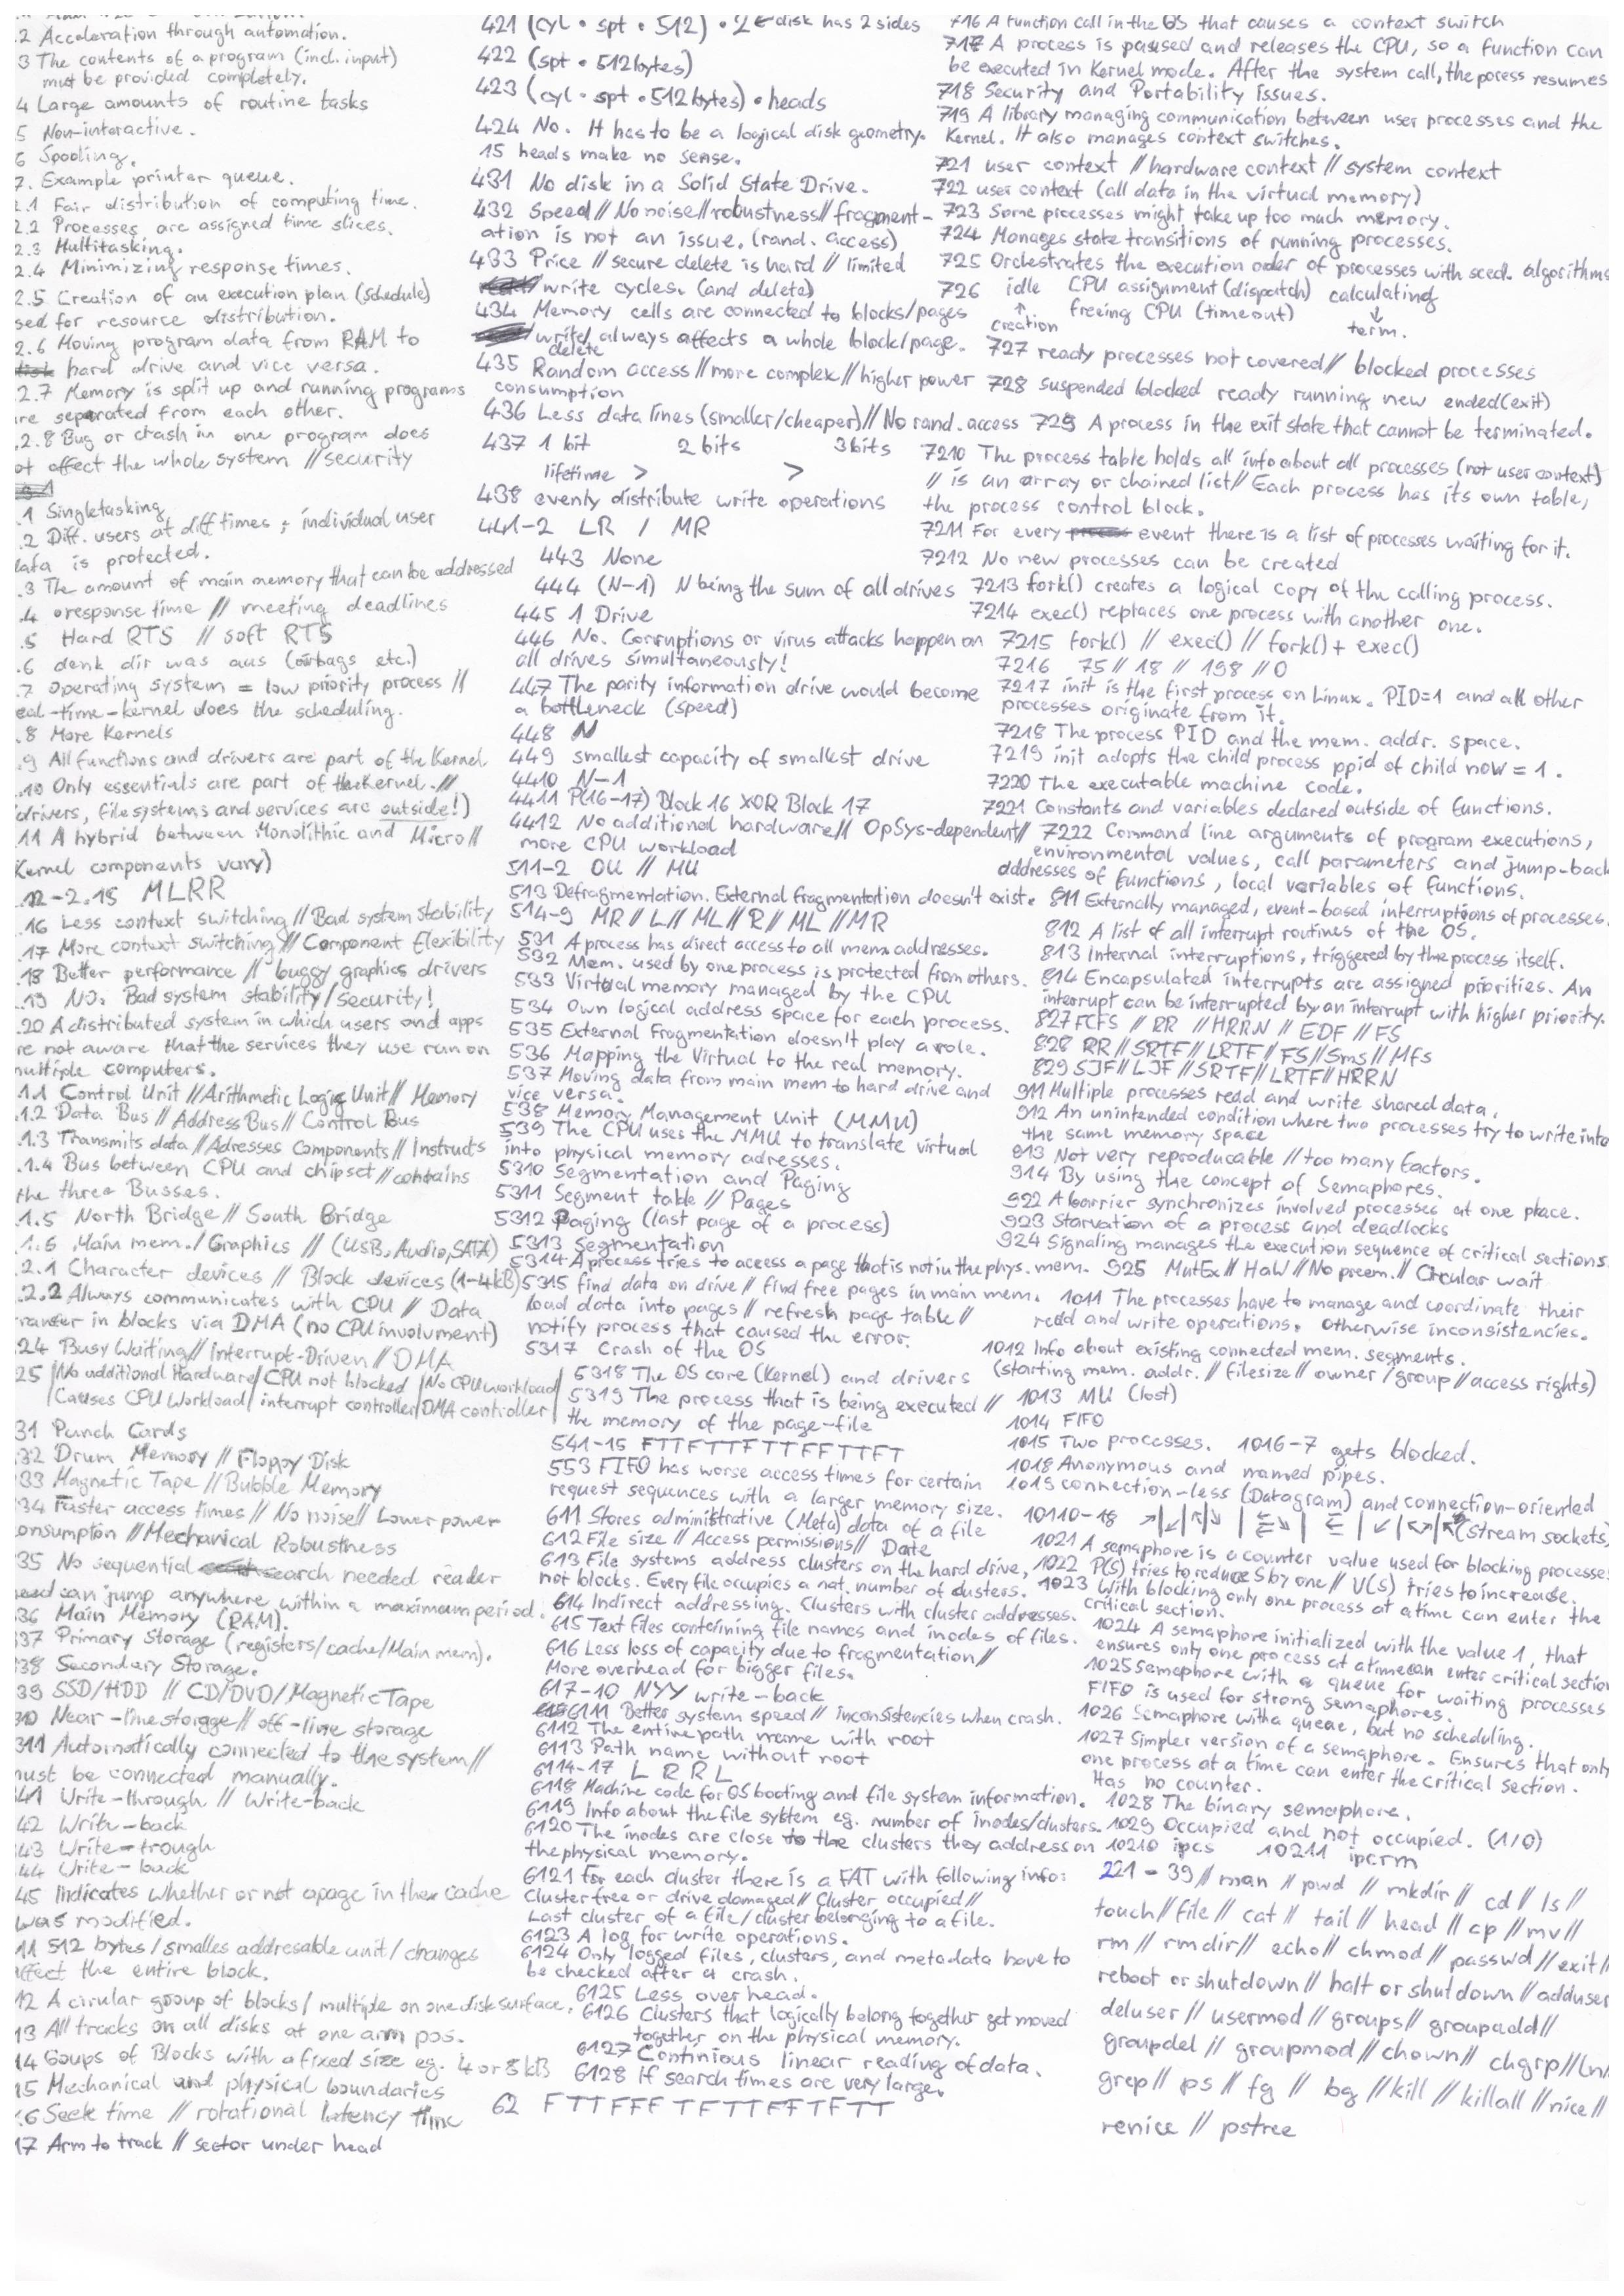 2 Acceleration through automation.
3 The contents of a program (incl. input)
must be provided completely.
4 Large amounts of routine tasks
5 Non-interactive.
6 Spooling.
7. Example printer queue.
2.1 Fair distribution of computing time.
2.2 Processes are assigned time slices.
2.3 Multitasking.
2.4 Minimizing response times.
2.5 Creation of an execution plan (schedule)
sed for resource distribution.
2.6 Moving program data from RAM to
hard drive and vice versa.
2.7 Memory is split up and running programs
re seperated from each other.
.2.8 Bug or crash in one program does
ot affect the whole system // security
.1 Singletasking
.2 Diff. users at diff times ; individual user
data is protected.
.3 The amount of main memory that can be addressed
.4 response time // meeting deadlines
.5 Hard RTS // soft RTS
.6 denk dir was aus (airbags etc.)
.7 Operating system = low priority process //
eal-time-kernel does the scheduling.
.8 More Kernels
.9 All functions and drivers are part of the Kernel
.10 Only essentials are part of the Kernel. //
(drivers, filesystems and services are outside!)
.11 A hybrid between Monolithic and Micro //
Kernel components vary)
.12-2.15 MLRR
.16 Less context switching // Bad system stability
.17 More context switching // Component Flexibility
.18 Better performance // buggy graphics drivers
.19 NO. Bad system stability / security!
.20 A distributed system in which users and apps
re not aware that the services they use run on
multiple computers.
.1.1 Control Unit // Arithmetic Logic Unit // Memory
.1.2 Data Bus // Address Bus // Control Bus
.1.3 Transmits data // Adresses Components // Instructs
.1.4 Bus between CPU and chipset // contains
the three Busses.
.1.5 North Bridge // South Bridge
.1.6 Main mem. / Graphics // (USB, Audio, SATA)
.2.1 Character devices // Block devices (1-4kB)
.2.2 Always communicates with CPU // Data
ransfer in blocks via DMA (no CPU involument)
.24 Busy Waiting // Interrupt-Driven // DMA
25 | No additional Hardware | CPU not blocked | No CPU workload
| Causes CPU Workload | interrupt controller | DMA controller |
31 Punch Cards
32 Drum Memory // Floppy Disk
33 Magnetic Tape // Bubble Memory
34 Faster access times // No noise // Lower power
onsumption // Mechanical Robustness
35 No sequential search needed reader
head can jump anywhere within a maximum period.
36 Main Memory (RAM).
37 Primary Storage (registers/cache/Main mem).
38 Secondary Storage.
39 SSD/HDD // CD/DVD/Magnetic Tape
310 Near-line storage // off-line storage
311 Automatically connected to the system //
must be connected manually.
41 Write-through // Write-back
42 Write-back
43 Write-trough
44 Write-back
45 Indicates whether or not a page in the cache
was modified.
11 512 bytes / smalles addresable unit / changes
affect the entire block.
12 A circular group of blocks / multiple on one disk surface.
13 All tracks on all disks at one arm pos.
14 Goups of Blocks with a fixed size eg. 4 or 8 kB
15 Mechanical and physical boundaries
16 Seek time // rotational latency time
17 Arm to track // sector under head
421 (cyl • spt • 512) • 2 ← disk has 2 sides
422 (spt • 512bytes)
423 (cyl • spt • 512 bytes) • heads
424 No. It has to be a logical disk geometry.
15 heads make no sense.
431 No disk in a Solid State Drive.
432 Speed // No noise // robustness // fragment-
ation is not an issue. (rand. access)
433 Price // secure delete is hard // limited
write cycles. (and delete)
434 Memory cells are connected to blocks/pages
write/ always affects a whole block/page.
delete
435 Random access // more complex // higher power
consumption
436 Less data lines (smaller/cheaper) // No rand. access
437 1 bit 2 bits 3 bits
lifetime > >
438 evenly distribute write operations
441-2 LR / MR
443 None
444 (N-1) N being the sum of all drives
445 1 Drive
446 No. Corruptions or virus attacks happen on
all drives simultaneously!
447 The parity information drive would become
a bottleneck (speed)
448 N
449 smallest capacity of smallest drive
4410 N-1
4411 P(16-17) Block 16 XOR Block 17
4412 No additional hardware // OpSys-dependent //
more CPU workload
511-2 OU // MU
513 Defragmentation. External fragmentation doesn't exist.
514-9 MR // L // ML // R // ML // MR
531 A process has direct access to all mem addresses.
532 Mem. used by one process is protected from others.
533 Virtual memory managed by the CPU
534 Own logical address space for each process.
535 External Fragmentation doesn't play a role.
536 Mapping the Virtual to the real memory.
537 Moving data from main mem to hard drive and
vice versa.
538 Memory Management Unit (MMU)
539 The CPU uses the MMU to translate virtual
into physical memory adresses.
5310 Segmentation and Paging
5311 Segment table // Pages
5312 Paging (last page of a process)
5313 Segmentation
5314 A process tries to access a page that is not in the phys. mem.
5315 find data on drive // find free pages in main mem.
load data into pages // refresh page table //
notify process that caused the error.
5317 Crash of the OS
5318 The OS core (Kernel) and drivers
5319 The process that is being executed //
the memory of the page-file
541-15 FTTFTTFTTFFTTFT
553 FIFO has worse access times for certain
request sequences with a larger memory size.
611 Stores administrative (Meta) data of a file
612 File size // Access permissions // Date
613 File systems address clusters on the hard drive,
not blocks. Every file occupies a nat. number of clusters.
614 Indirect addressing. Clusters with cluster addresses.
615 Text files containing file names and inodes of files.
616 Less loss of capacity due to fragmentation //
More overhead for bigger files.
617-10 NYY write-back
6111 Better system speed // inconsistencies when crash.
6112 The entire path name with root
6113 Path name without root
6114-17 L R R L
6118 Machine code for OS booting and file system information.
6119 Info about the file system eg. number of inodes/clusters.
6120 The inodes are close to the clusters they address on
the physical memory.
6121 For each cluster there is a FAT with following info:
Cluster free or drive damaged // Cluster occupied //
Last cluster of a file / cluster belonging to a file.
6123 A log for write operations.
6124 Only logged files, clusters, and metadata have to
be checked after a crash.
6125 Less over head.
6126 Clusters that logically belong together get moved
together on the physical memory.
6127 Continious linear reading of data.
6128 If search times are very large.
62 FTTFFFTFTTFFTFTT
716 A function call in the OS that causes a context switch
717 A process is paused and releases the CPU, so a function can
be executed in Kernel mode. After the system call, the porcess resumes
718 Security and Portability issues.
719 A library managing communication between user processes and the
Kernel. It also manages context switches.
721 user context // hardware context // system context
722 user context (all data in the virtual memory)
723 Some processes might take up too much memory.
724 Manages state transitions of running processes.
725 Orchestrates the execution order of processes with sced. algorithms
726 idle CPU assignment (dispatch) calculating
↑ creation freeing CPU (timeout) ↓ term.
727 ready processes not covered // blocked processes
728 suspended blocked ready running new ended(exit)
729 A process in the exit state that cannot be terminated.
7210 The process table holds all info about all processes (not user context)
// is an array or chained list // Each process has its own table,
the process control block.
7211 For every event there is a list of processes waiting for it.
7212 No new processes can be created
7213 fork() creates a logical copy of the calling process.
7214 exec() replaces one process with another one.
7215 fork() // exec() // fork() + exec()
7216 75 // 18 // 198 // 0
7217 init is the first process on Linux. PID=1 and all other
processes originate from it.
7218 The process PID and the mem. addr. space.
7219 init adopts the child process ppid of child now = 1.
7220 The executable machine code.
7221 Constants and variables declared outside of functions.
7222 Command line arguments of program executions,
environmental values, call parameters and jump-back
addresses of functions, local variables of functions.
811 Externally managed, event-based interruptions of processes.
812 A list of all interrupt routines of the OS.
813 Internal interruptions, triggered by the process itself.
814 Encapsulated interrupts are assigned priorities. An
interrupt can be interrupted by an interrupt with higher priority.
827 FCFS // RR // HRRN // EDF // FS
828 RR // SRTF // LRTF // FS // Sms // Mfs
829 SJF // LJF // SRTF // LRTF // HRRN
911 Multiple processes read and write shared data.
912 An unintended condition where two processes try to write into
the same memory space
913 Not very reproducable // too many factors.
914 By using the concept of Semaphores.
922 A barrier synchronizes involved processes at one place.
923 Starvation of a process and deadlocks
924 Signaling manages the execution sequence of critical sections.
925 MutEx // HaW // No preem. // Circular wait
1011 The processes have to manage and coordinate their
read and write operations. Otherwise inconsistencies.
1012 Info about existing connected mem. segments.
(starting mem. addr. // filesize // owner / group // access rights)
1013 MU (lost)
1014 FIFO
1015 Two processes. 1016-7 gets blocked.
1018 Anonymous and named pipes.
1019 connection-less (Datagram) and connection-oriented
(stream sockets)
10110-18
1021 A semaphore is a counter value used for blocking processes
1022 P(S) tries to reduce S by one // V(S) tries to increase.
1023 With blocking only one process at a time can enter the
critical section.
1024 A semaphore initialized with the value 1, that
ensures only one process at a time can enter critical section
1025 Semaphore with a queue for waiting processes
FIFO is used for strong semaphores.
1026 Semaphore with a queue, but no scheduling.
1027 Simpler version of a semaphore. Ensures that only
one process at a time can enter the critical section.
Has no counter.
1028 The binary semaphore.
1029 Occupied and not occupied. (1/0)
10210 ipcs 10211 ipcrm
221-39 // man // pwd // mkdir // cd // ls //
touch // file // cat // tail // head // cp // mv //
rm // rmdir // echo // chmod // passwd // exit //
reboot or shutdown // halt or shutdown // adduser
deluser // usermod // groups // groupadd //
groupdel // groupmod // chown // chgrp // ln /
grep // ps // fg // bg // kill // killall // nice //
renice // pstree